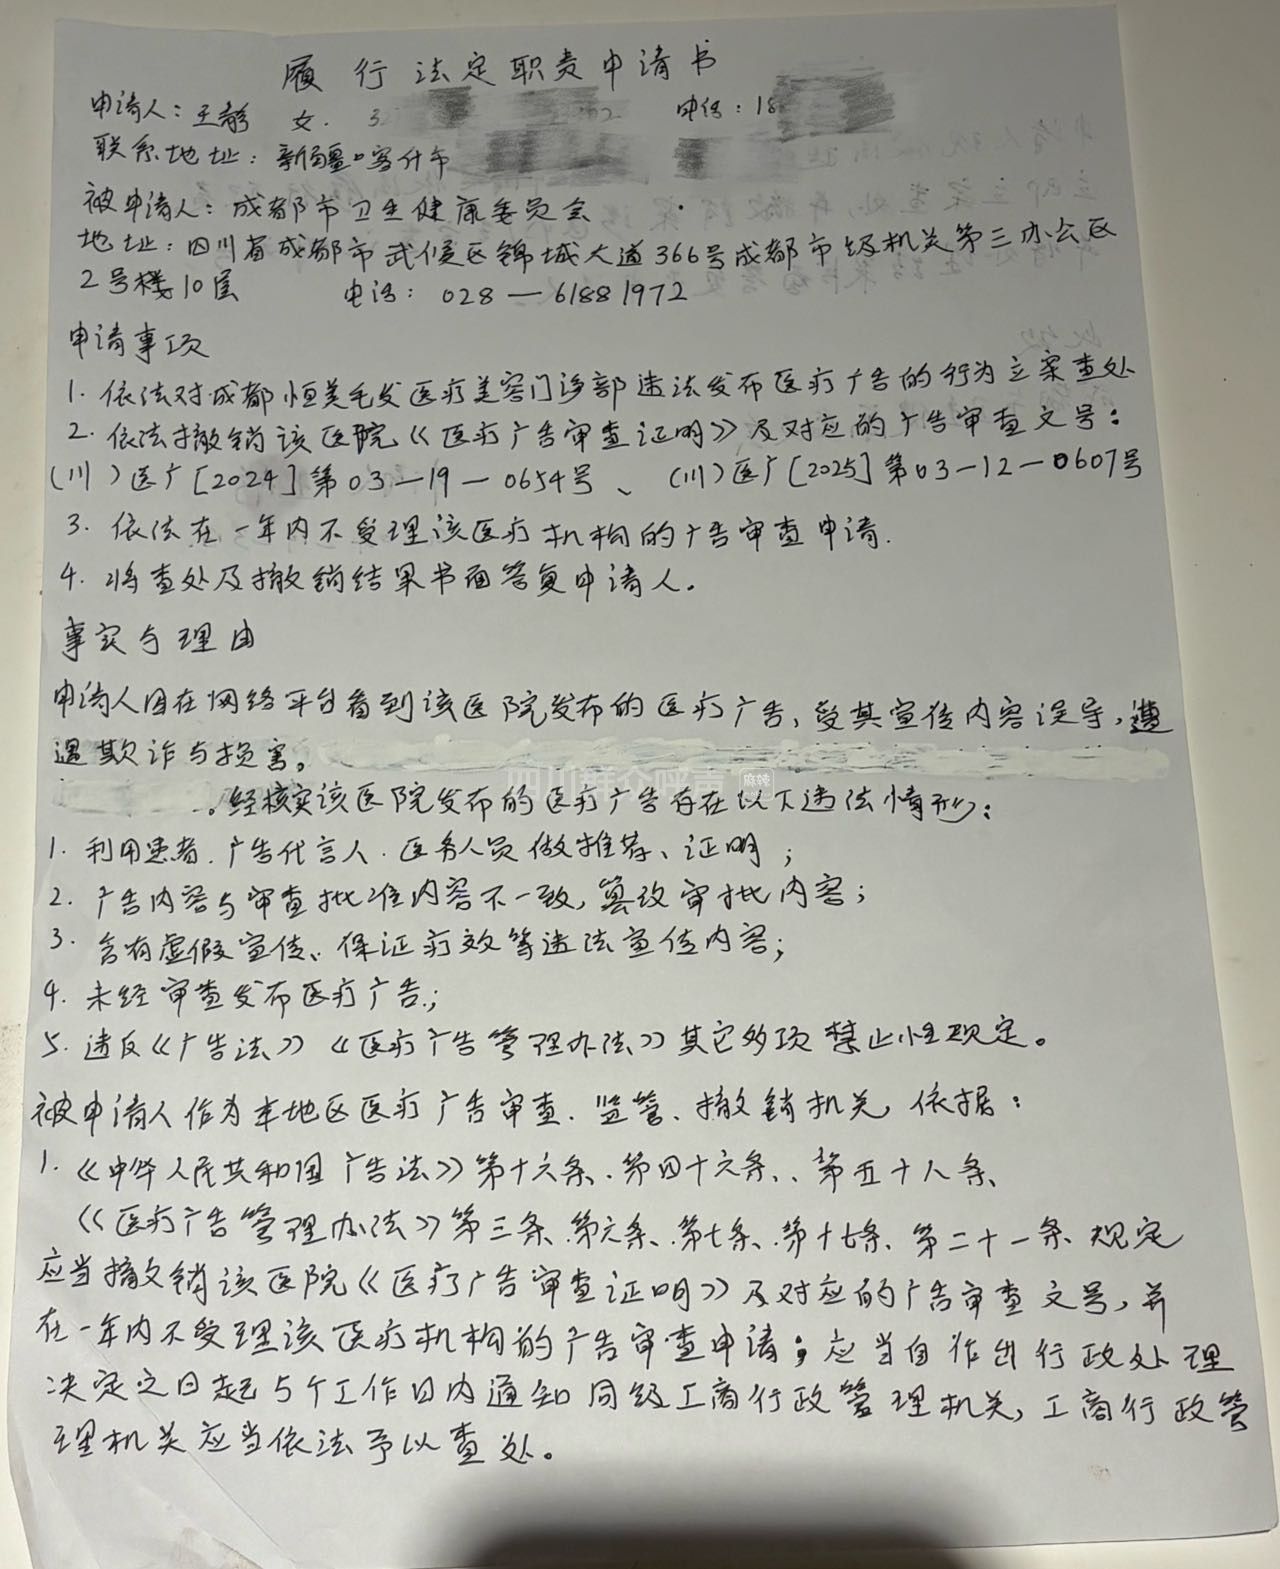 履行法定职责申请书
申请人：王静 女. 3 02 电话：18
联系地址：新疆喀什市
被申请人：成都市卫生健康委员会
地址：四川省成都市武侯区锦城大道366号成都市级机关第三办公区
2号楼10层 电话：028—61881972
申请事项
1. 依法对成都恒美毛发医疗美容门诊部违法发布医疗广告的行为立案查处
2. 依法撤销该医院《医疗广告审查证明》及对应的广告审查文号：
(川)医广[2024]第03-19-0654号、(川)医广[2025]第03-12-0607号
3. 依法在一年内不受理该医疗机构的广告审查申请.
4. 将查处及撤销结果书面答复申请人。
事实与理由
申请人因在网络平台看到该医院发布的医疗广告，受其宣传内容误导，遭
遇欺诈与损害。
四川群众呼声 麻辣
。经核实该医院发布的医疗广告存在以下违法情形：
1. 利用患者.广告代言人.医务人员做推荐、证明；
2. 广告内容与审查批准内容不一致，篡改审批内容；
3. 含有虚假宣传、保证疗效等违法宣传内容；
4. 未经审查发布医疗广告；
5. 违反《广告法》《医疗广告管理办法》其它多项禁止性规定。
被申请人作为本地区医疗广告审查、监管、撤销机关，依据：
1.《中华人民共和国广告法》第十六条、第四十六条、第五十八条、
《医疗广告管理办法》第三条、第六条、第七条、第十七条、第二十一条规定
应当撤销该医院《医疗广告审查证明》及对应的广告审查文号，并
在一年内不受理该医疗机构的广告审查申请；应当自作出行政处理
决定之日起5个工作日内通知同级工商行政管理机关，工商行政管
理机关应当依法予以查处。